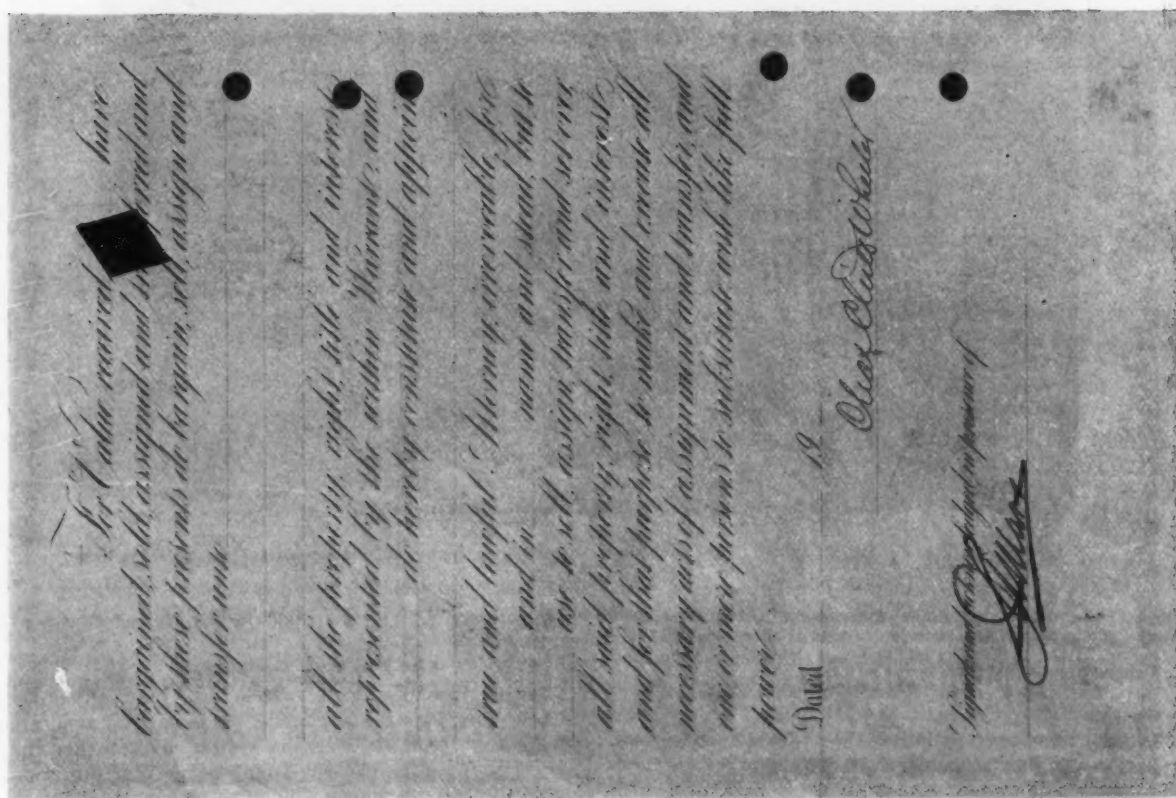 For Value received have
bargained, sold, assigned and transferred and
by these presents do bargain, sell, assign and
transfer unto
all the property, right, title and interest
represented by the within Warrant, and
do hereby constitute and appoint
true and lawful Attorney, irrevocable, for
and in name and stead but to
use to sell, assign, transfer and set over
all said property, right, title and interest
and for that purpose to make and execute all
necessary acts of assignment and transfer, and
one or more persons to substitute with like full
power.
Dated 19
Signed and acknowledged in presence of